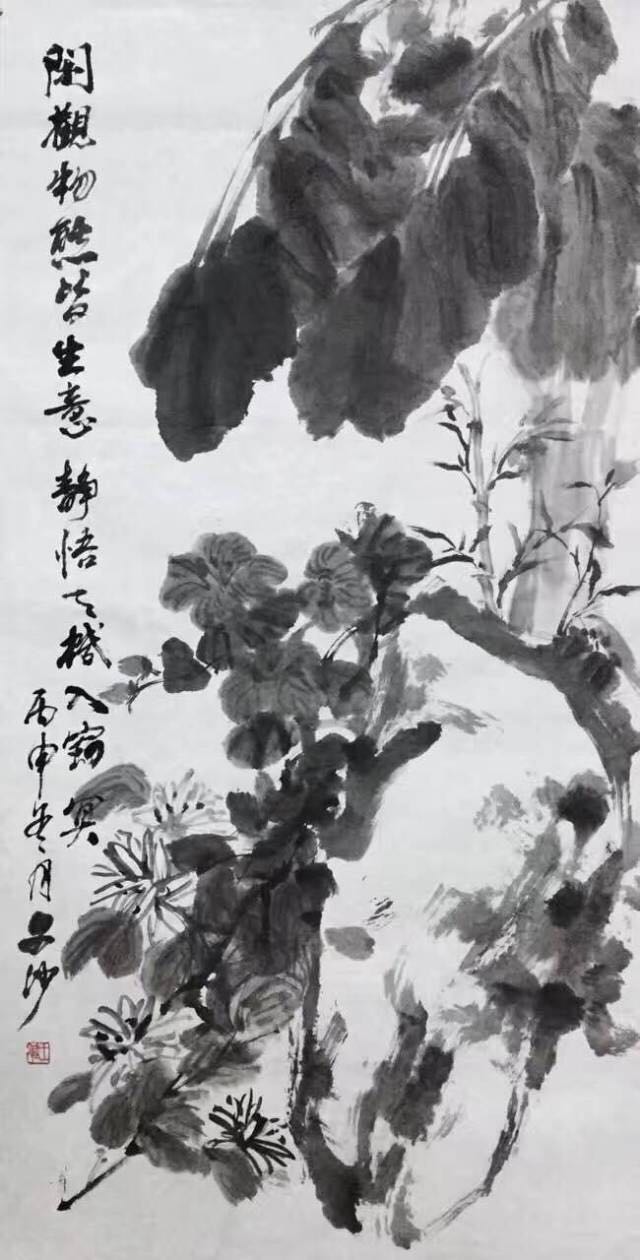 閑觀物態皆生意靜悟天機入窈冥
丙申冬月文沙